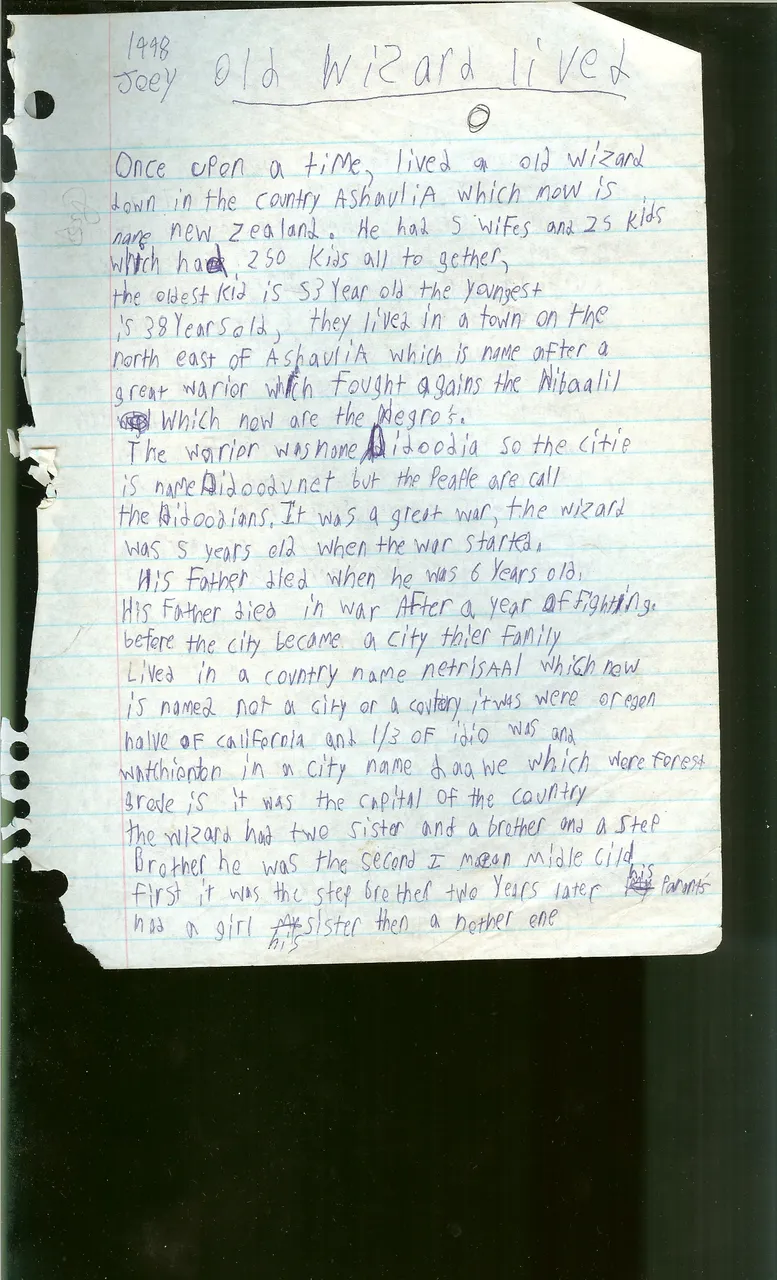 1998
Joey old wizard lived
Once upon a time, lived a old wizard
down in the country AshauliA which now is
name new zealand. He had 5 wifes and 25 kids
which had 250 kids all to gether,
the oldest kid is 53 year old the youngest
is 38 years old, they lived in a town on the
north east of AshauliA which is name after a
great warior which fought agains the Nibaalil
which now are the Negro's.
The worier was name Didoodia so the citie
is name Didoodvnet but the People are call
the Didoodians. It was a great war, the wizard
was 5 years old when the war started.
His Father died when he was 6 years old.
His Father died in war After a year of fighting.
before the city became a city thier family
Lived in a country name netrisAAl which now
is named not a city or a country it was were oregon
halve of california and 1/3 OF idio was and
watchionton in a city name daawe which were forest
grove is it was the capital of the country
the wizard had two sister and a brother and a step
Brother he was the second I mean midle cild
first it was the step brother two years later his Parants
had a girl his sister then a nother one